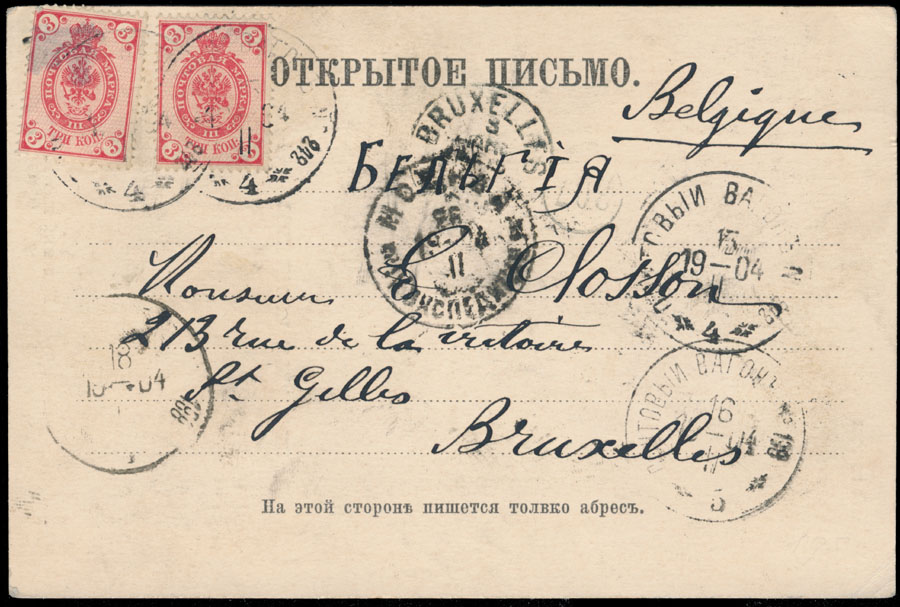 3 3 3 3
ПОЧТОВАЯ МАРКА
ТРИ КОП.
3 3
3 3
ПОЧТОВАЯ МАРКА
ТРИ КОП.
3 3
4
11
04
4
ОТКРЫТОЕ ПИСЬМО.
Belgique
БЕЛЬГІЯ
BRUXELLES
11
ПОЧТОВЫЙ ВАГОН
15
19—04
11
4
Monsieur E Closson
213 rue de la victoire
St. Gilles
Bruxelles
18
04
ПОЧТОВЫЙ ВАГОНЪ
16
04
11
5
На этой сторонѣ пишется толвко абресъ.